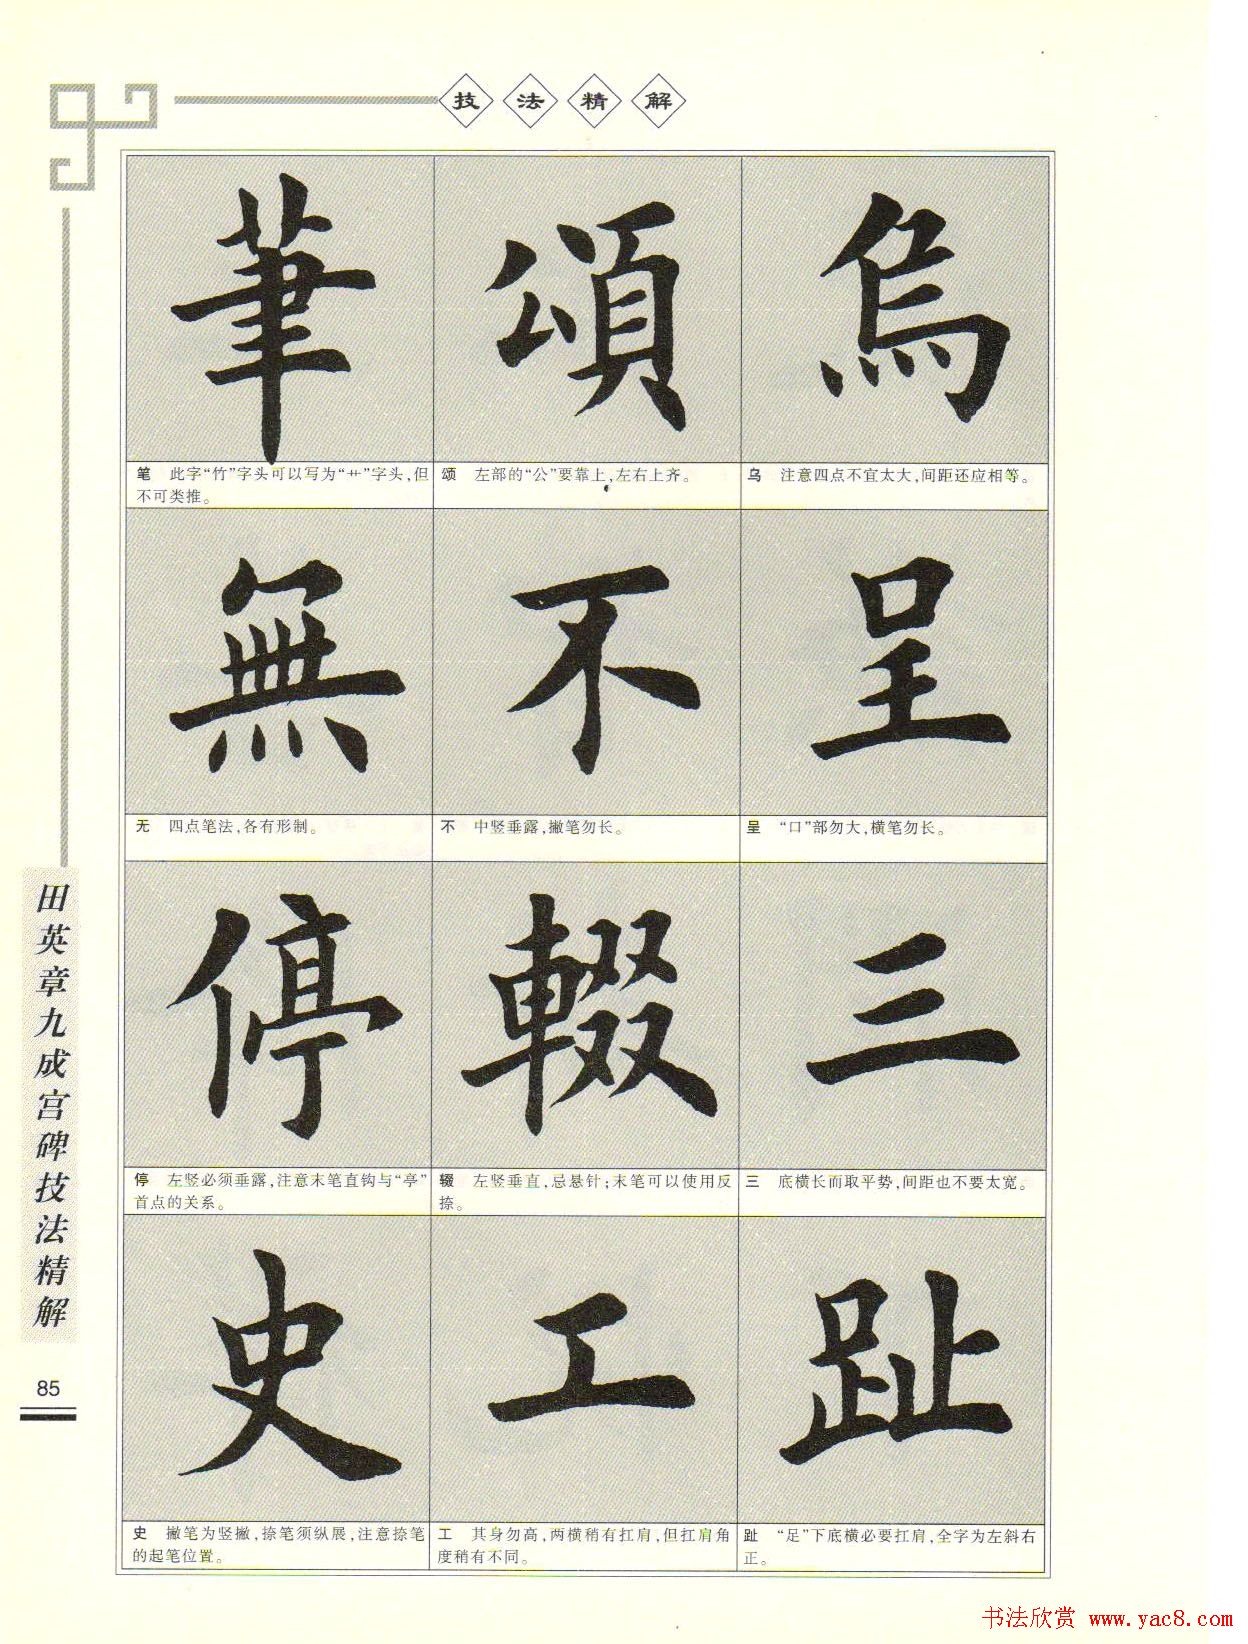 技法精解
筆 頌 烏
笔 此字“竹”字头可以写为“艹”字头,但
不可类推。
颂 左部的“公”要靠上,左右上齐。
乌 注意四点不宜太大,间距还应相等。
無 不 呈
无 四点笔法,各有形制。
不 中竖垂露,撇笔勿长。
呈 “口”部勿大,横笔勿长。
停 輟 三
停 左竖必须垂露,注意末笔直钩与“亭”
首点的关系。
辍 左竖垂直,忌悬针;末笔可以使用反
捺。
三 底横长而取平势,间距也不要太宽。
史 工 趾
史 撇笔为竖撇,捺笔须纵展,注意捺笔
的起笔位置。
工 其身勿高,两横稍有扛肩,但扛肩角
度稍有不同。
趾 “足”下底横必要扛肩,全字为左斜右
正。
田英章九成宫碑技法精解
85
书法欣赏 www.yac8.com